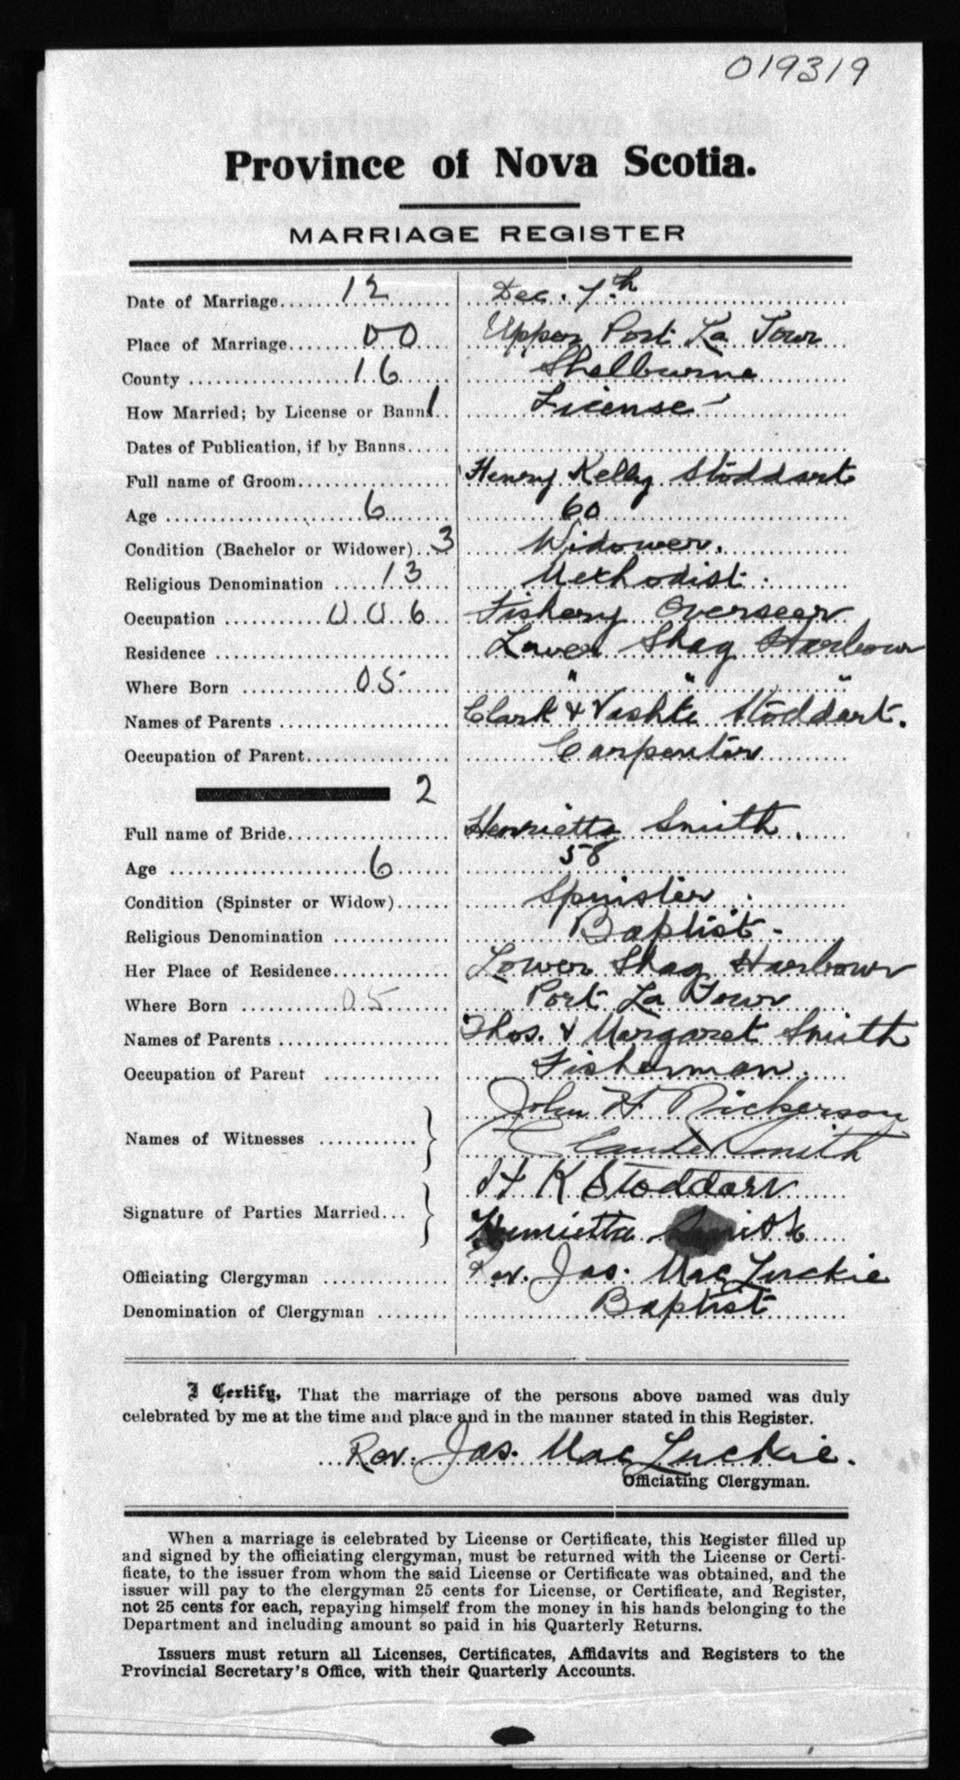 019319
Province of Nova Scotia.
MARRIAGE REGISTER
Date of Marriage 12 Dec. 7th
Place of Marriage 00 Upper Port La Tour
County 16 Shelburne
How Married; by License or Banns 1 License
Dates of Publication, if by Banns
Full name of Groom Henry Kelly Stoddart
Age 6 60
Condition (Bachelor or Widower) 3 Widower.
Religious Denomination 13 Methodist.
Occupation 006 Fishery Overseer
Residence Lower Shag Harbour
Where Born 05 " " "
Names of Parents Clark & Vashti Stoddart.
Occupation of Parent Carpenter
2
Full name of Bride Henrietta Smith.
Age 6 58
Condition (Spinster or Widow) Spinster.
Religious Denomination Baptist -
Her Place of Residence Lower Shag Harbour
Where Born 05 Port La Tour
Names of Parents Thos. & Margaret Smith
Occupation of Parent Fisherman.
John H Nickerson
Names of Witnesses
Claude Smith
H K Stoddart
Signature of Parties Married
Henrietta Smith
Officiating Clergyman Rev. Jas. Mac Luckie
Denomination of Clergyman Baptist
I Certify, That the marriage of the persons above named was duly
celebrated by me at the time and place and in the manner stated in this Register.
Rev. Jas. Mac Luckie.
Officiating Clergyman.
When a marriage is celebrated by License or Certificate, this Register filled up
and signed by the officiating clergyman, must be returned with the License or Certi-
ficate, to the issuer from whom the said License or Certificate was obtained, and the
issuer will pay to the clergyman 25 cents for License, or Certificate, and Register,
not 25 cents for each, repaying himself from the money in his hands belonging to the
Department and including amount so paid in his Quarterly Returns.
Issuers must return all Licenses, Certificates, Affidavits and Registers to the
Provincial Secretary's Office, with their Quarterly Accounts.